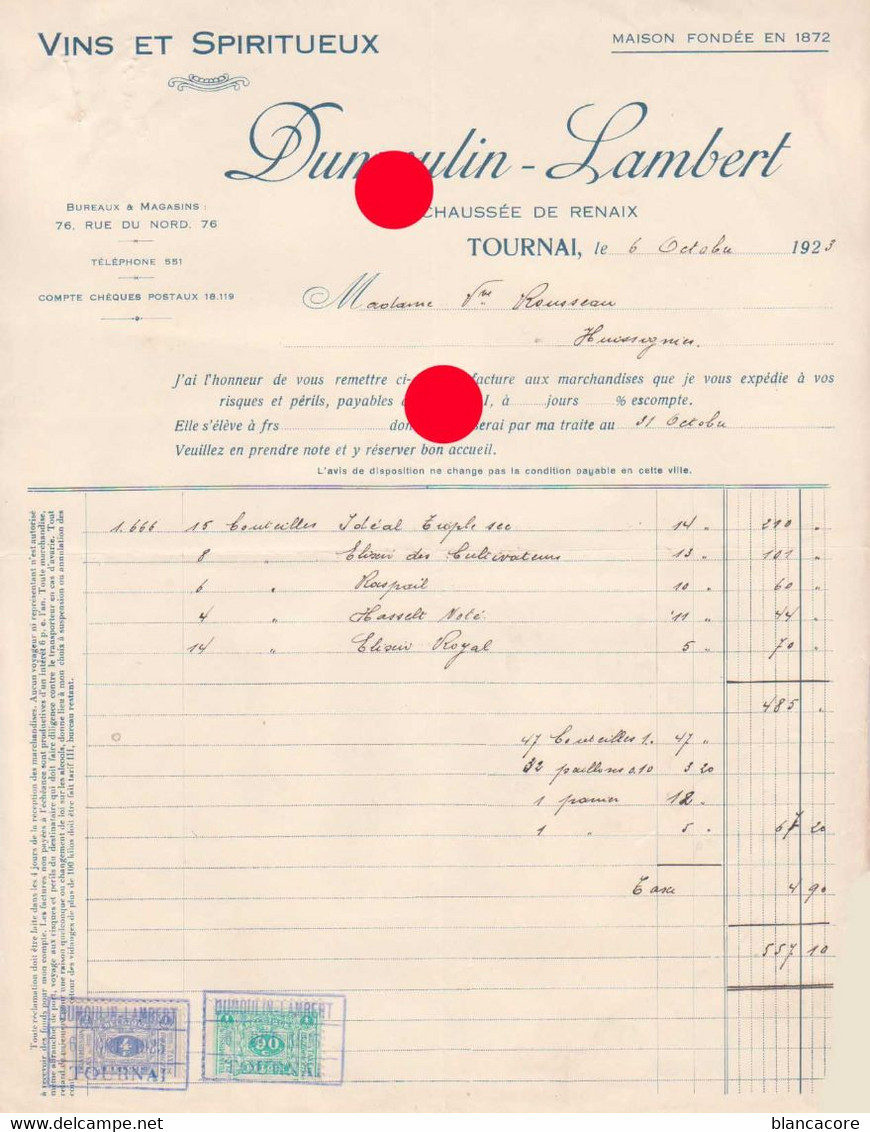 VINS ET SPIRITUEUX
MAISON FONDÉE EN 1872
Dumoulin-Lambert
BUREAUX & MAGASINS :
76, RUE DU NORD, 76
TÉLÉPHONE 551
COMPTE CHÈQUES POSTAUX 18.119
CHAUSSÉE DE RENAIX
TOURNAI, le 6 Octobre 1923
Madame Vve Rousseau
Huissignies.
J'ai l'honneur de vous remettre ci- facture aux marchandises que je vous expédie à vos
risques et périls, payables à jours % escompte.
Elle s'élève à frs don serai par ma traite au 31 Octobre
Veuillez en prendre note et y réserver bon accueil.
L'avis de disposition ne change pas la condition payable en cette ville.
1.666 15 Bouteilles Idéal Triple sec 14 " 210 "
8 " Elixir des Cultivateurs 13 " 101 "
6 " Raspail 10 " 60 "
4 " Hasselt Noté 11 " 44 "
14 " Elixir Royal 5 " 70 "
485 "
47 Bouteilles 1. 47 "
32 paillons 0.10 3 20
1 panier 12 "
1 " 5 " 67 20
Taxe 4 90
557 10
Toute réclamation doit être faite dans les 4 jours de la réception des marchandises. Aucun voyageur ni représentant n'est autorisé
à recevoir des fonds pour mon compte. Les factures non payées à l'échéance sont productives d'un intérêt 6 p. c. l'an. Toute marchandise,
même affranchie de port, voyage aux risques et périls du destinataire qui doit faire diligence contre le transporteur en cas d'avarie. Tout
retard de une raison quelconque ou changement de loi sur les alcools, donne lieu à mon choix à suspension ou annulation des
retour des vidanges de plus de 100 kilos doit être fait tarif III, bureau restant.
DUMOULIN-LAMBERT
4
TOURNAI
DUMOULIN-LAMBERT
90
blancacore